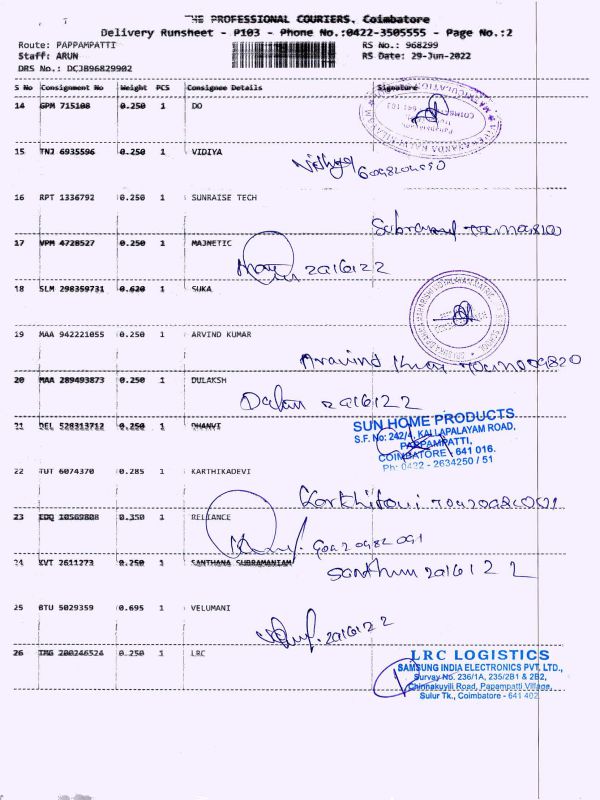 THE PROFESSIONAL COURIERS, Coimbatore
Delivery Runsheet - P103 - Phone No.:0422-3505555 - Page No.:2
Route: PAPPAMPATTI RS No.: 968299
Staff: ARUN RS Date: 29-Jun-2022
DRS No.: DCJB96829902
S No Consignment No Weight PCS Consignee Details Signature
14 GPM 715108 0.250 1 DO
15 TNJ 6935596 0.250 1 VIDIYA
16 RPT 1336792 0.250 1 SUNRAISE TECH
17 VPM 4728527 0.250 1 MAJNETIC
29/6/22
18 SLM 298359731 0.620 1 SUKA
19 MAA 942221055 0.250 1 ARVIND KUMAR
Aravind
20 MAA 289493873 0.250 1 DULAKSH
29/6/22
21 DEL 528313712 0.250 1 DHANVI
SUN HOME PRODUCTS
S.F. No: 242/4, KALLAPALAYAM ROAD,
PAPPAMPATTI,
COIMBATORE - 641 016.
Ph: 0422 - 2634250 / 51
22 TUT 6074370 0.285 1 KARTHIKADEVI
23 EDQ 10569808 0.350 1 RELIANCE
24 KVT 2611273 0.250 1 SANTHANA SUBRAMANIAM
29/6/22
25 BTU 5029359 0.695 1 VELUMANI
29/6/22
26 TMG 200246524 0.250 1 LRC
LRC LOGISTICS
SAMSUNG INDIA ELECTRONICS PVT, LTD.,
Survay No. 236/1A, 235/2B1 & 2B2,
Chinnakuyili Road, Papampatti Village,
Sulur Tk., Coimbatore - 641 402